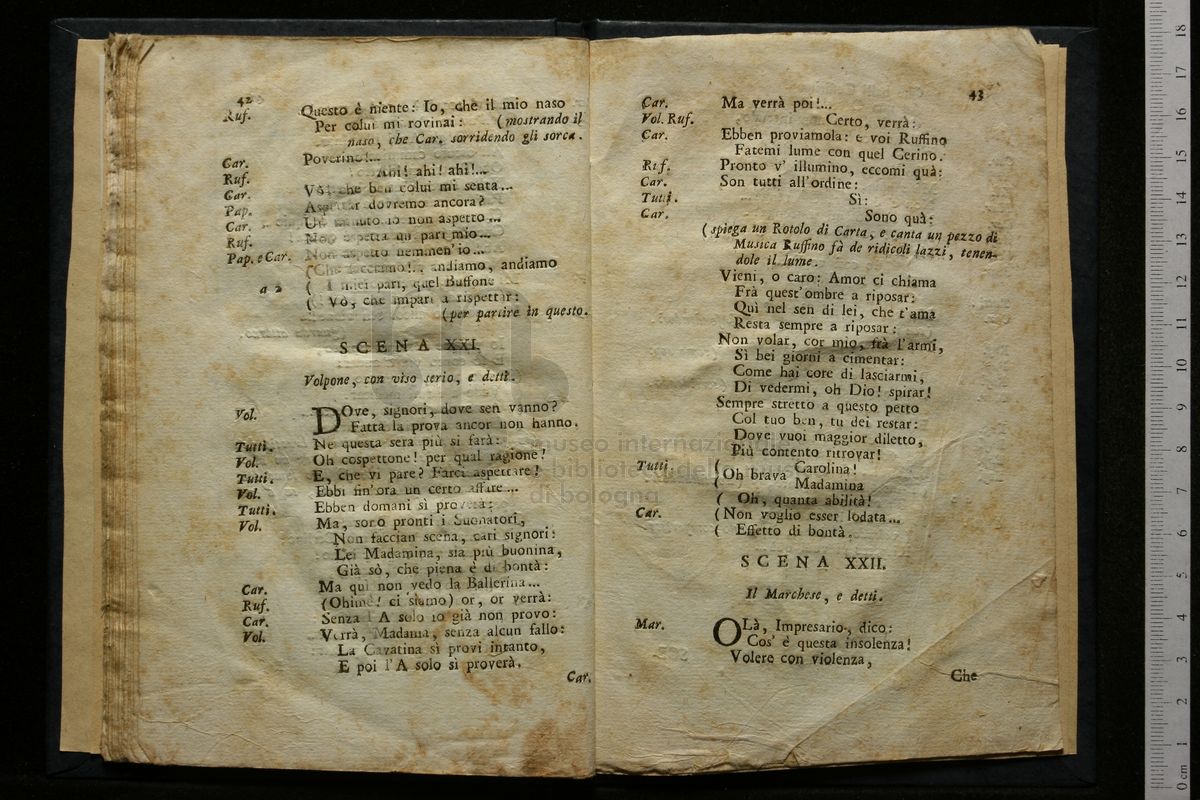 42
Ruf. Questo è niente: Io, che il mio naso
Per colui mi rovinai: (mostrando il
naso, che Car. sorridendo gli sorca.
Car. Poverino!...
Ruf. Ahi! ahi! ahi!...
Car. Vò! che ben colui mi senta...
Pap. Aspettar dovremo ancora?
Car. Un minuto io non aspetto...
Ruf. Non aspetta un pari mio...
Pap. e Car. Non aspetto nemmen' io...
(Che facciamo!.. andiamo, andiamo
a 2 ( I miei pari, quel Buffone
( Vò, che impari a rispettar:
(per partire in questo.
SCENA XXI.
Volpone, con viso serio, e detti.
Vol. DOve, signori, dove sen vanno?
Fatta la prova ancor non hanno.
Tutti. Ne questa sera più si farà:
Vol. Oh cospettone! per qual ragione!
Tutti. E, che vi pare? Farci aspettare!
Vol. Ebbi fin'ora un certo affare...
Tutti. Ebben domani si proverà:
Vol. Ma, sono pronti i Suonatori,
Non faccian scena, cari signori:
Lei Madamina, sia più buonina,
Già sò, che piena è di bontà:
Car. Ma quì non vedo la Ballerina...
Ruf. (Ohimè! ci siamo) or, or verrà:
Car. Senza l'A solo io già non provo:
Vol. Verrà, Madama, senza alcun fallo:
La Cavatina si provi intanto,
E poi l'A solo si proverà.
Car.
43
Car. Ma verrà poi!...
Vol. Ruf. Certo, verrà:
Car. Ebben proviamola: e voi Ruffino
Fatemi lume con quel Cerino.
Ruf. Pronto v' illumino, eccomi quà:
Car. Son tutti all'ordine:
Tutti. Sì:
Car. Sono quà:
(spiega un Rotolo di Carta, e canta un pezzo di
Musica Ruffino fà de ridicoli lazzi, tenen-
dole il lume.
Vieni, o caro: Amor ci chiama
Frà quest'ombre a riposar:
Quì nel sen di lei, che t'ama
Resta sempre a riposar:
Non volar, cor mio, frà l'armi,
Sì bei giorni a cimentar:
Come hai core di lasciarmi,
Di vedermi, oh Dio! spirar!
Sempre stretto a questo petto
Col tuo ben, tu dei restar:
Dove vuoi maggior diletto,
Più contento ritrovar!
Tutti. (Oh brava Carolina!
Madamina
( Oh, quanta abilità!
Car. (Non voglio esser lodata...
( Effetto di bontà.
SCENA XXII.
Il Marchese, e detti.
Mar. OLà, Impresario, dico:
Cos' è questa insolenza!
Volere con violenza,
Che
museo internazionale
e biblioteca della musica
di bologna
0 cm 1 2 3 4 5 6 7 8 9 10 11 12 13 14 15 16 17 18